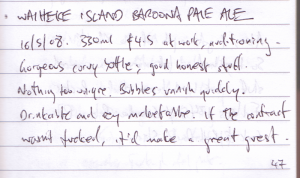 • WAIHEKE ISLAND BAROONA PALE ALE
16/5/08. 330ml $4.5 at work, auditioning.
Gorgeous curvy bottle, good honest stuff.
Nothing too unique. Bubbles vanish quickly.
Drinkable and very marketable. if the contract
wasnt fucked, it'd make a great guest.
47